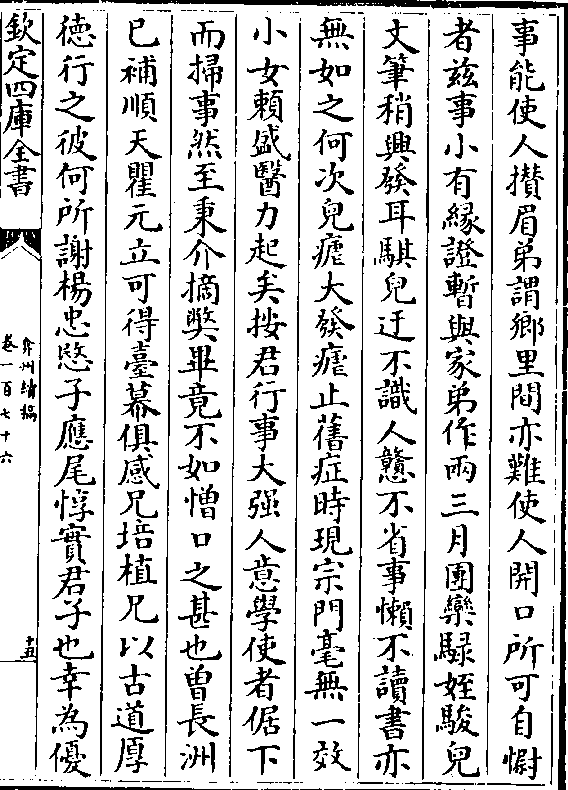 事能使人攢眉弟謂鄉里間亦難使人開口所可自慰
者茲事小有緣證暫與家弟作兩三月團欒騄姪駿兒
文筆稍興發耳騏兒迂不識人戇不省事懶不讀書亦
無如之何次兒瘧大發瘧止舊症時現宗門毫無一效
小女頼盛醫力起矣按君行事大强人意學使者倨下
而掃事然至秉介摘弊畢竟不如憎口之甚也曽長洲
已補順天瞿元立可得臺幕俱感兄培植兄以古道厚
徳行之彼何所謝楊忠愍子應尾惇實君子也幸為優
欽定四庫全書
弇州續稿
卷一百七十六
十五